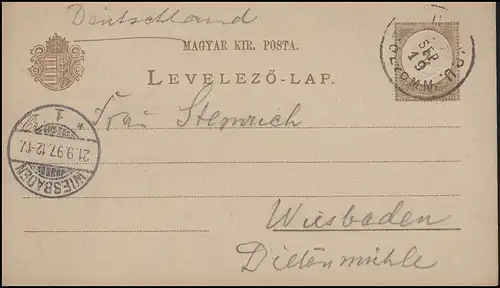 Deutschland
MAGYAR KIR. POSTA.
LEVELEZŐ-LAP.
SEP
19
Frau Steinrich
WIESBADEN
21.9.97.12-1V.
1
*
Wiesbaden
Dietenmühle